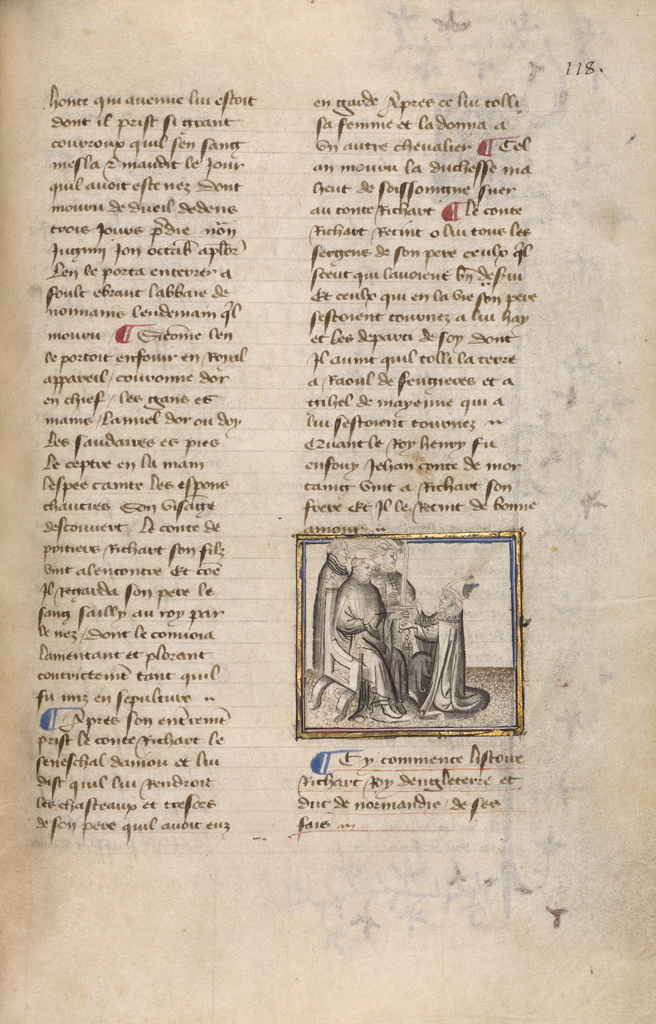 118.
honte qui auenue lui estoit
dont il prist si grant
courroux quil sen sang
mesla & maudit le jour
quil auoit este nez Dont
mouru de dueil dedens
trois jours
Len le porta enterrer a
font ebraut labbaie de
nonnains lendemain ql
mouru ¶ Si come len
le portoit enfouir en Royal
appareil / couronne dor
en chief / les gans es
mains / lannel dor ou doy
les saudaires es pies
le ceptre en la main
lespee cainte les esperons
chauciez Son visaige
descouuert / Le conte de
poitiers Richart son filz
vint alencontre Et coe
Il regarda son pere le
sang sailly au roy par
le nez / dont le conuoia
lamentant et plorant
contrictemt tant quil
fu mis en sepulture
¶ Apres son enterremt
prist le conte Richart le
seneschal daniou et lui
dist quil lui rendroit
les chasteaux et tresors
de son pere quil auoit euz
en garde Apres ce lui tolli
sa femme et la donna a
vn autre cheualier ¶ Tel
an mouru la duchesse ma
heut de saissoingne suer
au conte Richart ¶ Le conte
Richart Retint o lui tous les
sergens de son pere ceulx ql
sceut qui lauoient bn desrui
Et ceulx qui en la vie son pere
sestoient tournez a lui hay
et les departi de soy dont
Il auint quil tolli la terre
a Raoul de feugieres et a
gihel de mayenne qui a
lui sestoient tournez
Quant le Roy henry fu
enfouy Jehan conte de mor
taing vint a Richart son
frere Et Il le Retint de bonne
amour
¶ Cy commence listoire
Richart Roy dengleterre et
duc de normandie / de ses
fais